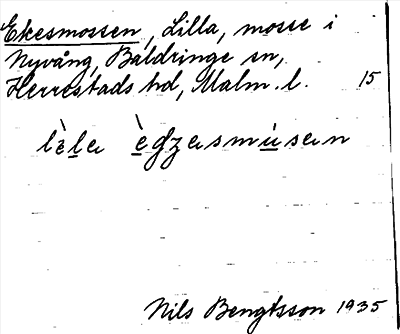 Ekesmossen, Lilla, mosse i
Nyvång, Baldringe sn,
Herrestads hd, Malm. l. 15
Nils Bengtsson 1935